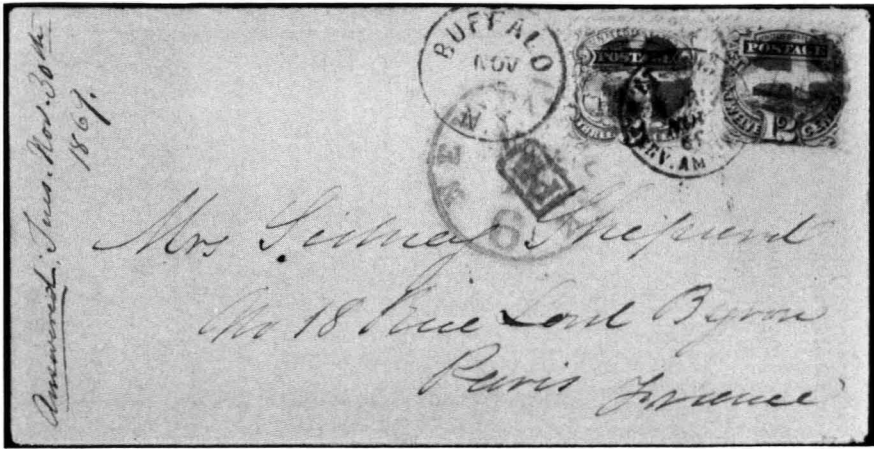 Answered. Tues. Nov. 30th
1869.
BUFFALO
NOV
N.Y.
NEW
6
POSTAGE
POSTAGE
TWELVE 12 CENTS
SERV. AM.
Mrs Sidney Shepard
No 18 Rue Lord Byron
Paris France